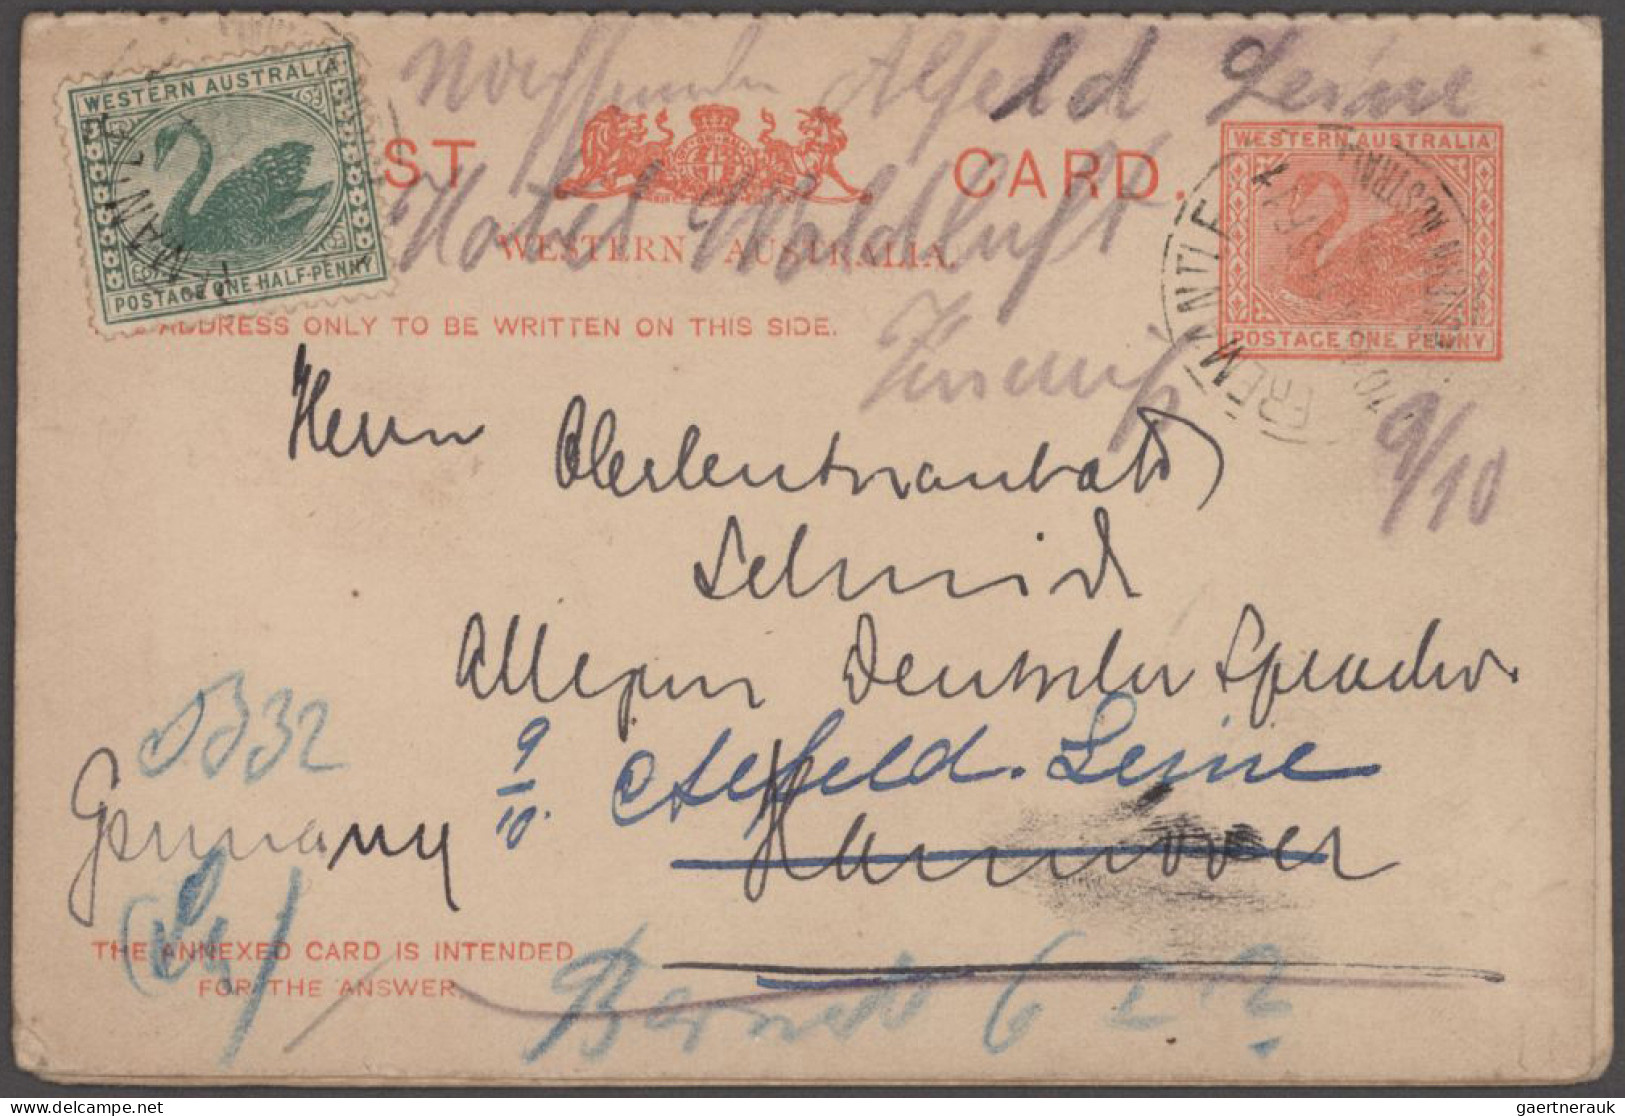 Alfeld Leine
WESTERN AUSTRALIA
POSTAGE ONE HALF-PENNY
ST CARD.
WESTERN AUSTRALIA
POSTAGE ONE PENNY
Hotel Waldluft
WESTERN AUSTRALIA.
FREMANTLE
WESTERN AUSTRALIA
ADDRESS ONLY TO BE WRITTEN ON THIS SIDE.
9/10
Herrn
Schmidt
Allgem Deutscher Sprachv.
9/10. Alfeld. Leine
Germany Hannover
THE ANNEXED CARD IS INTENDED
FOR THE ANSWER.
hipstamp.com gaertnerauk